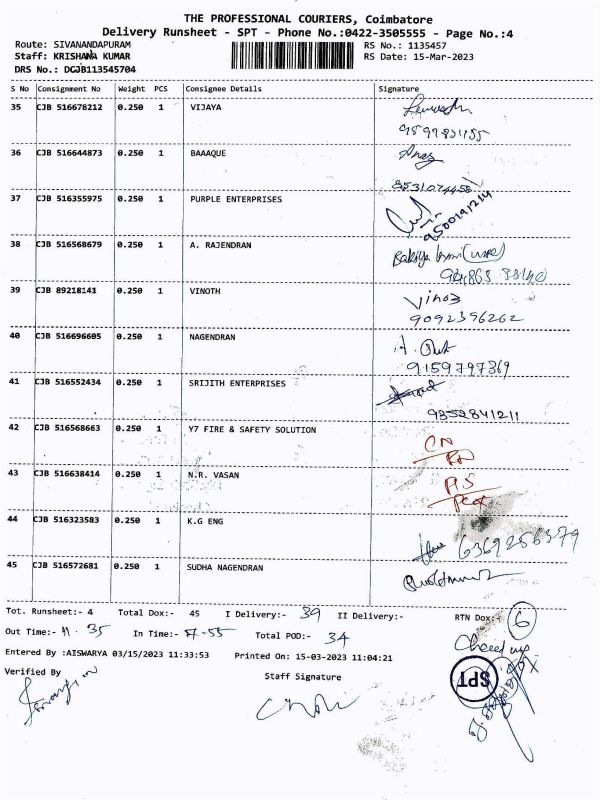 THE PROFESSIONAL COURIERS, Coimbatore
Delivery Runsheet - SPT - Phone No.:0422-3505555 - Page No.:4
Route: SIVANANDAPURAM RS No.: 1135457
Staff: KRISHANA KUMAR RS Date: 15-Mar-2023
DRS No.: DCJB113545704
S No Consignment No Weight PCS Consignee Details Signature
35 CJB 516678212 0.250 1 VIJAYA
36 CJB 516644873 0.250 1 BAAAQUE
8531074458
37 CJB 516355975 0.250 1 PURPLE ENTERPRISES
9500141214
38 CJB 516568679 0.250 1 A. RAJENDRAN
39 CJB 89218141 0.250 1 VINOTH
9092396262
40 CJB 516696605 0.250 1 NAGENDRAN
9159797369
41 CJB 516552434 0.250 1 SRIJITH ENTERPRISES
9852841211
42 CJB 516568663 0.250 1 Y7 FIRE & SAFETY SOLUTION
43 CJB 516638414 0.250 1 N.R. VASAN
44 CJB 516323583 0.250 1 K.G ENG
6369256379
45 CJB 516572681 0.250 1 SUDHA NAGENDRAN
Tot. Runsheet:- 4 Total Dox:- 45 I Delivery:- 39 II Delivery:- RTN Dox:- 6
Out Time:- 11.35 In Time:- Total POD:- 34
Entered By :AISWARYA 03/15/2023 11:33:53 Printed On: 15-03-2023 11:04:21
Verified By Staff Signature
SPT